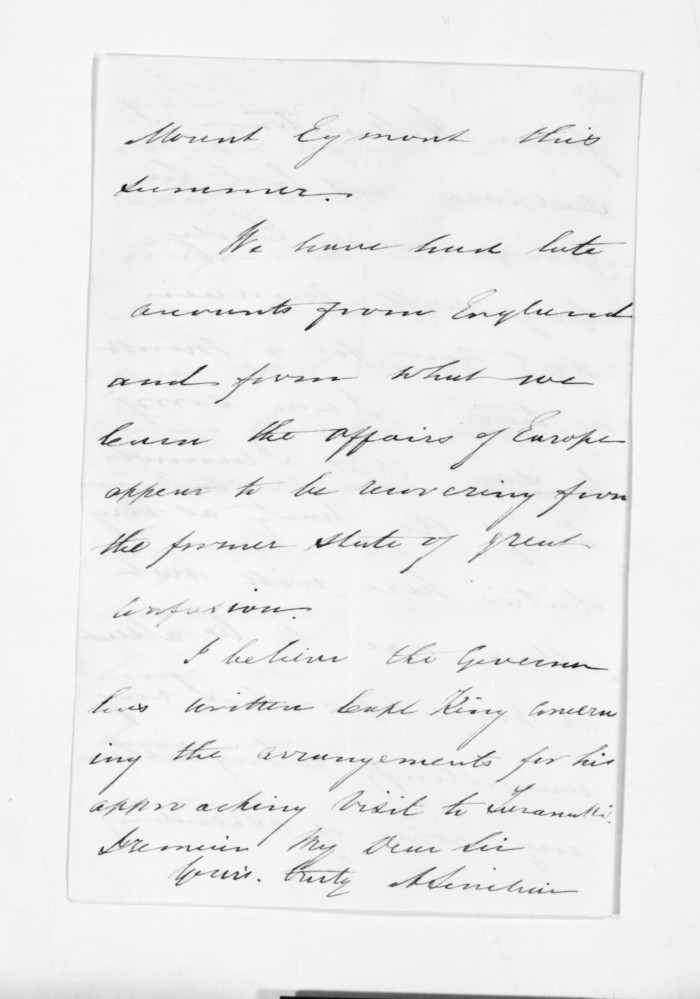 Mount Egmont this
summer.
We have had late
accounts from England
and from what we
learn the affairs of Europe
appear to be recovering from
the former state of great
confusion.
I believe the Governor
has written Capt King concern
ing the arrangements for his
approaching visit to Taranaki.
I remain My Dear Sir
Yours truly A Sinclair